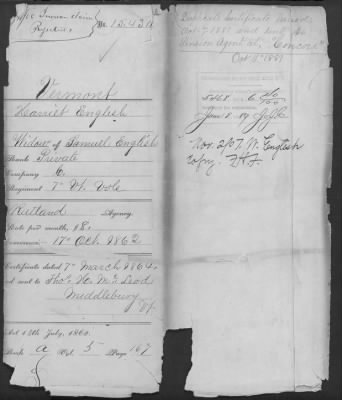 No. 15.430
Vermont
Harriet English
Widow of Samuel English
Rank Private
Company C.
Regiment 7" Vt. Vols
Rutland Agency.
Rate per month, $8,
Commence 17" Oct. 1862
Certificate dated 7" March 1864,
and sent to Thos. H. Mc Leod
Middlebury
Vt.
Act 14th July, 1862.
Book A Vol. 5 Page 167
Duplicate Certificate issued
Oct. 7, 1881 and sent to
Pension Agent at, "Concord"
Oct 8" 1881
Nov. 2/07 N. English
Copy.